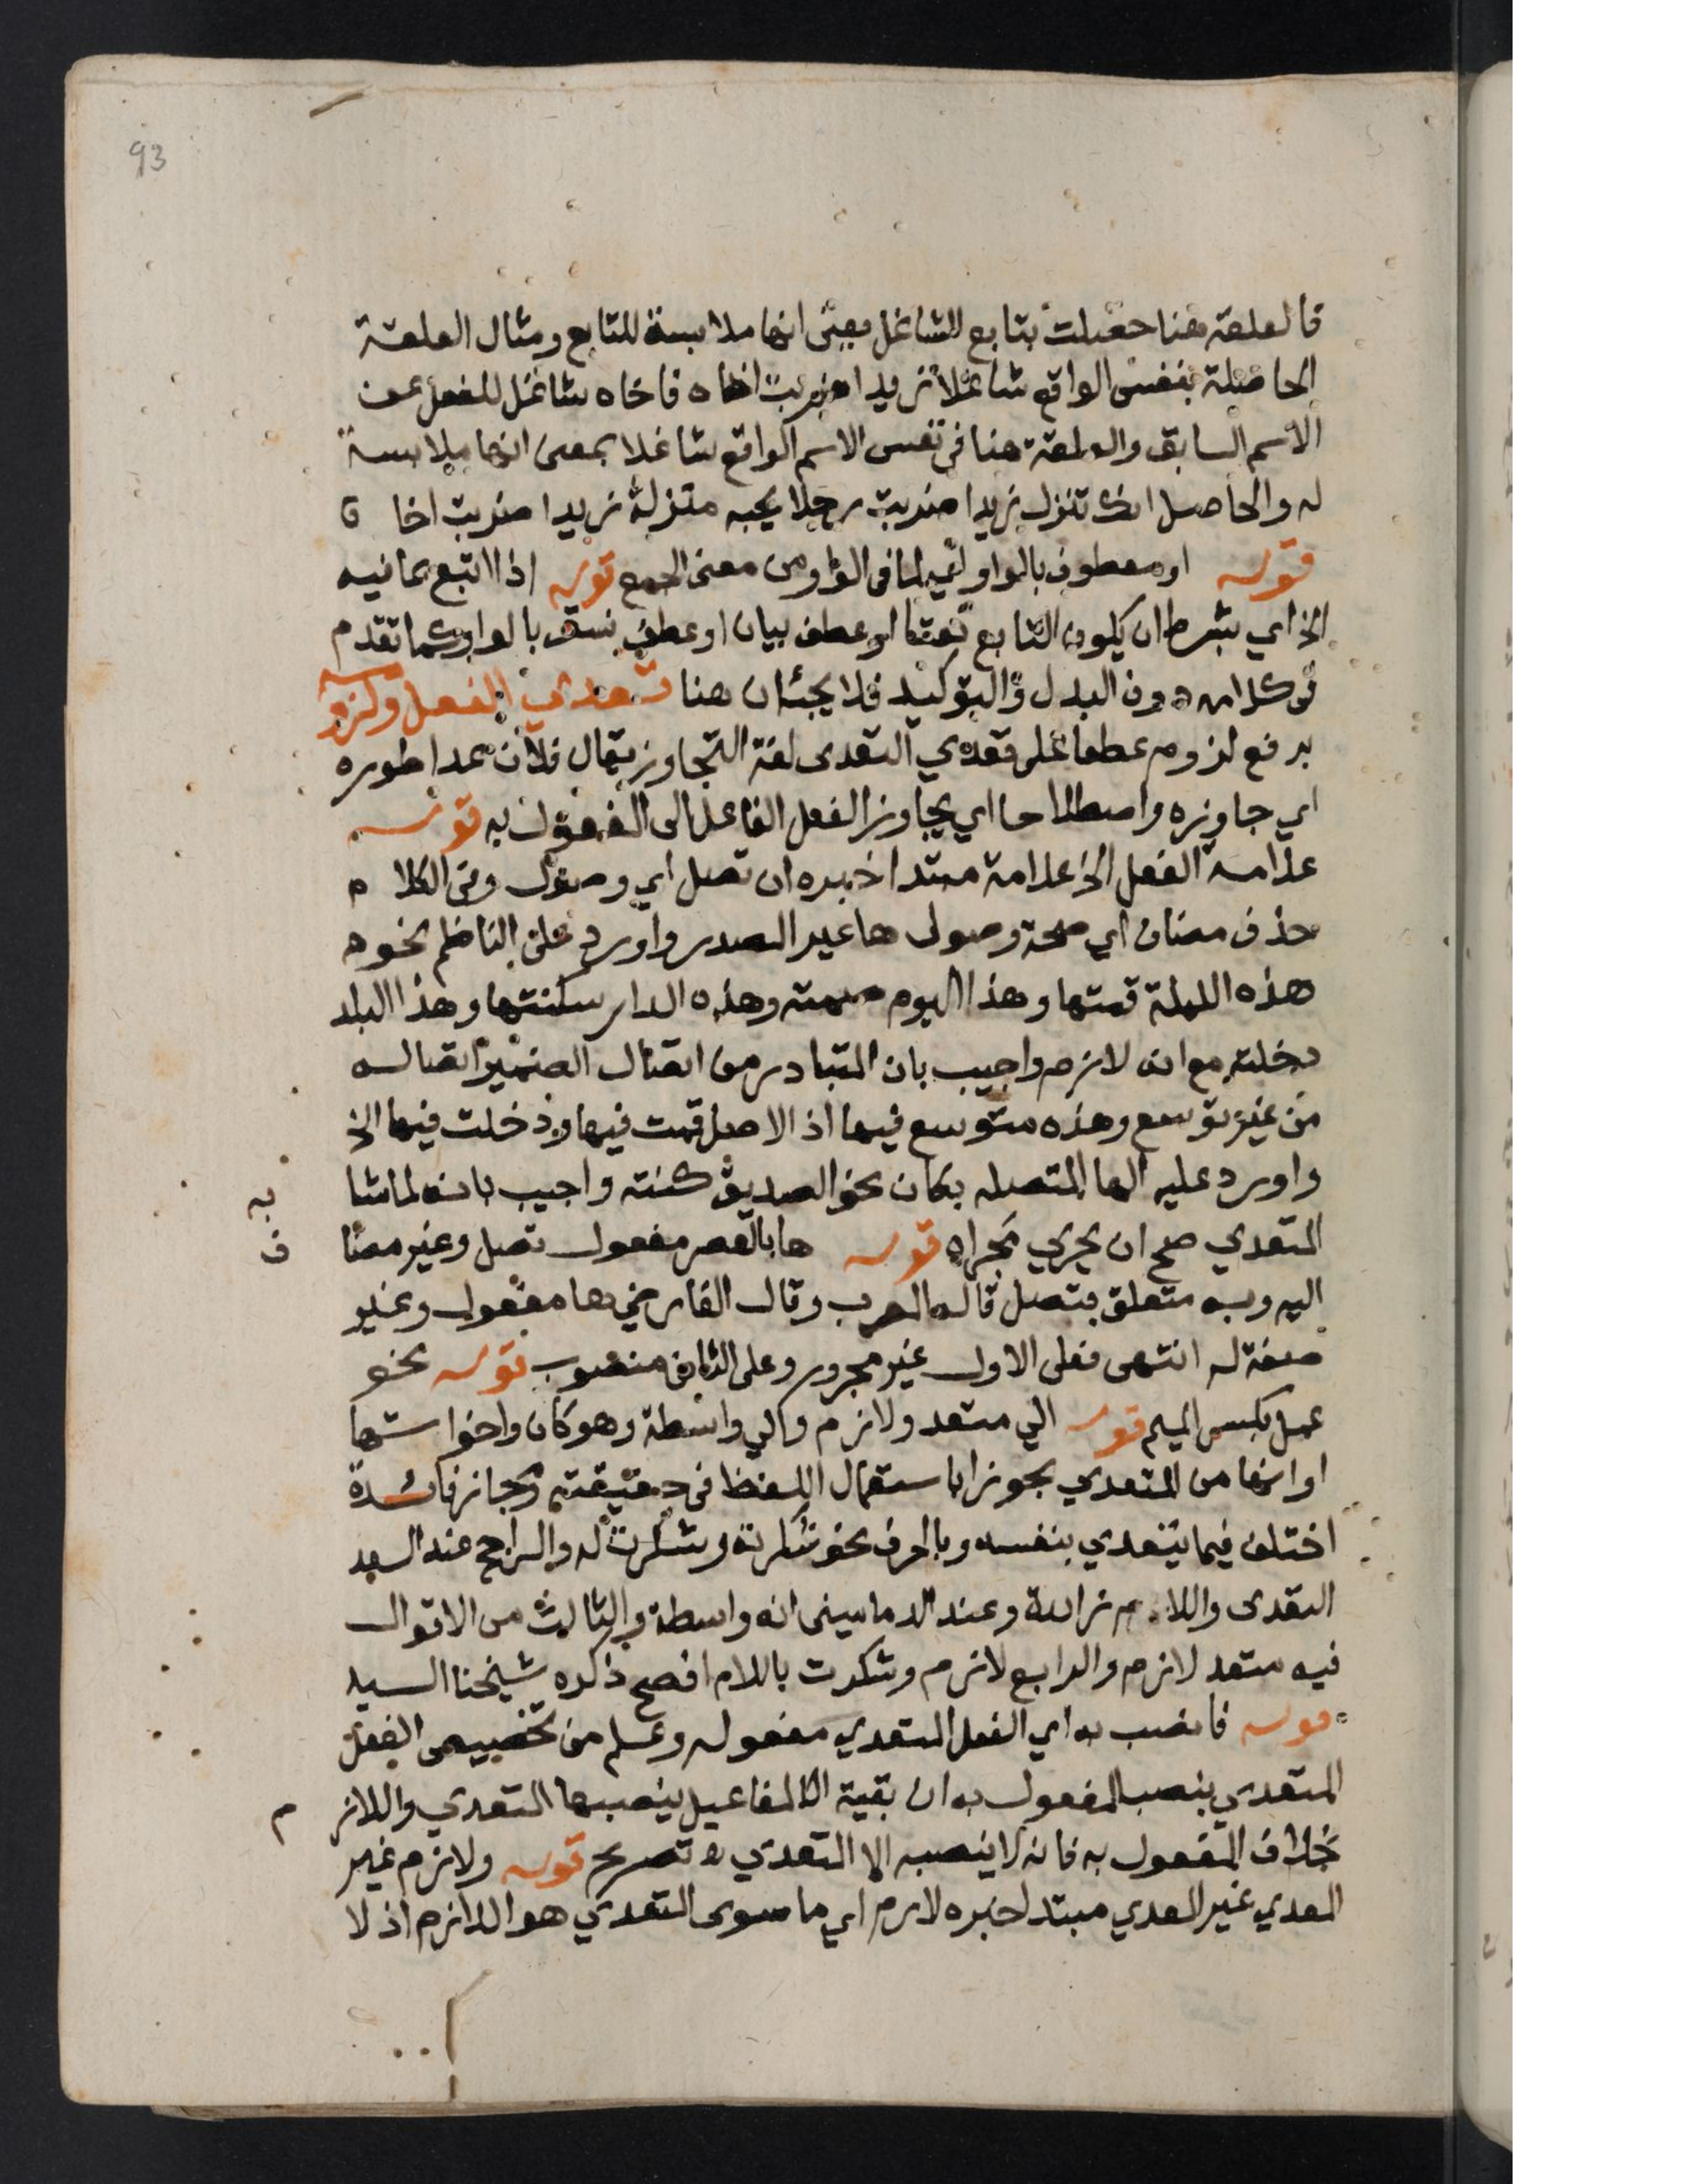 93
فالعلقة هنا حصلت بتابع الشاغل بمعنى انها ملابسة للتابع ومثال العلقة
الحاصلة بنفس الواقع شاغلا زيدا ضربت اخاه فاخاه شاغل للفعل عن
الاسم السابق والعلقة هنا في نفس الاسم الواقع شاغلا بمعنى انها ملابسة
له والحاصل انك تنزل زيدا ضربت رجلا يحبه منزلة زيدا ضربت اخا ه
قوله او معطوف بالواو اي لما في الواو من معنى الجمع قوله اذا اتبع بما فيه
الخ اي بشرط ان يكون التابع نعتا او عطف بيان او عطف نسق بالواو كما تقدم
في كلامه دون البدل والتوكيد فلا يجئان هنا تعدي الفعل ولزومه
برفع لزوم عطفا على تعدي التعدى لغة التجاوز يقال فلان عدا طوره
اي جاوزه واصطلاحا اي يجاوز الفعل الفاعل الى المفعول به قوله
علامة الفعل الخ علامة مبتدا خبره ان تصل اي وصول وفي الكلا م
حذف مضاف اي صحة وصول ها غير المصدر واورد على الناظم نحو ه
هذه الليلة قمتها وهذا اليوم صمته وهذه الدار سكنتها وهذا البلد
دخلته مع انه لازم واجيب بان المتبادر من اتصال الضمير اتصاله
من غير توسع وهذه متوسع فيها اذ الاصل قمت فيها ودخلت فيها الخ
واورد عليه الها المتصله بكان نحو الصديق كنته واجيب بانه لما شا به
المتعدي صح ان يجري مجراه قوله ها بالقصر مفعول تصل وغير مضا ف
اليه وبه متعلق بتصل قاله المعرب وقال الفارضي ها مفعول وغير
صفة له انتهى فعلى الاول غير مجرور وعلى الثاني منصوب قوله نحو
عمل بكسر الميم قوله الي متعد ولازم والي واسطة وهو كان واخواتها
او انها من المتعدي بجوز ا باستعمال اللفظ في حقيقته ومجازه فائدة
اختلف فيما يتعدي بنفسه وبالحرف نحو شكرته وشكرت له والراجح عند السعد
التعدى واللام زائدة وعند الدماميني انه واسطة والثالث من الاقوال
فيه متعد لازم والرابع لازم وشكرت باللام افصح ذكره شيخنا السيد
قوله فانصب به اي الفعل المتعدي مفعوله وعلم من تخصيص الفعل
المتعدي بنصب المفعول به ان بقية المفاعيل ينصبها المتعدي واللاز م
خلاف المفعول به فانه لا ينصبه الا المتعدي تصريح قوله ولازم غير
المعدي غير المعدي مبتدا خبره لازم اي ما سوى المتعدي هو اللازم اذ لا